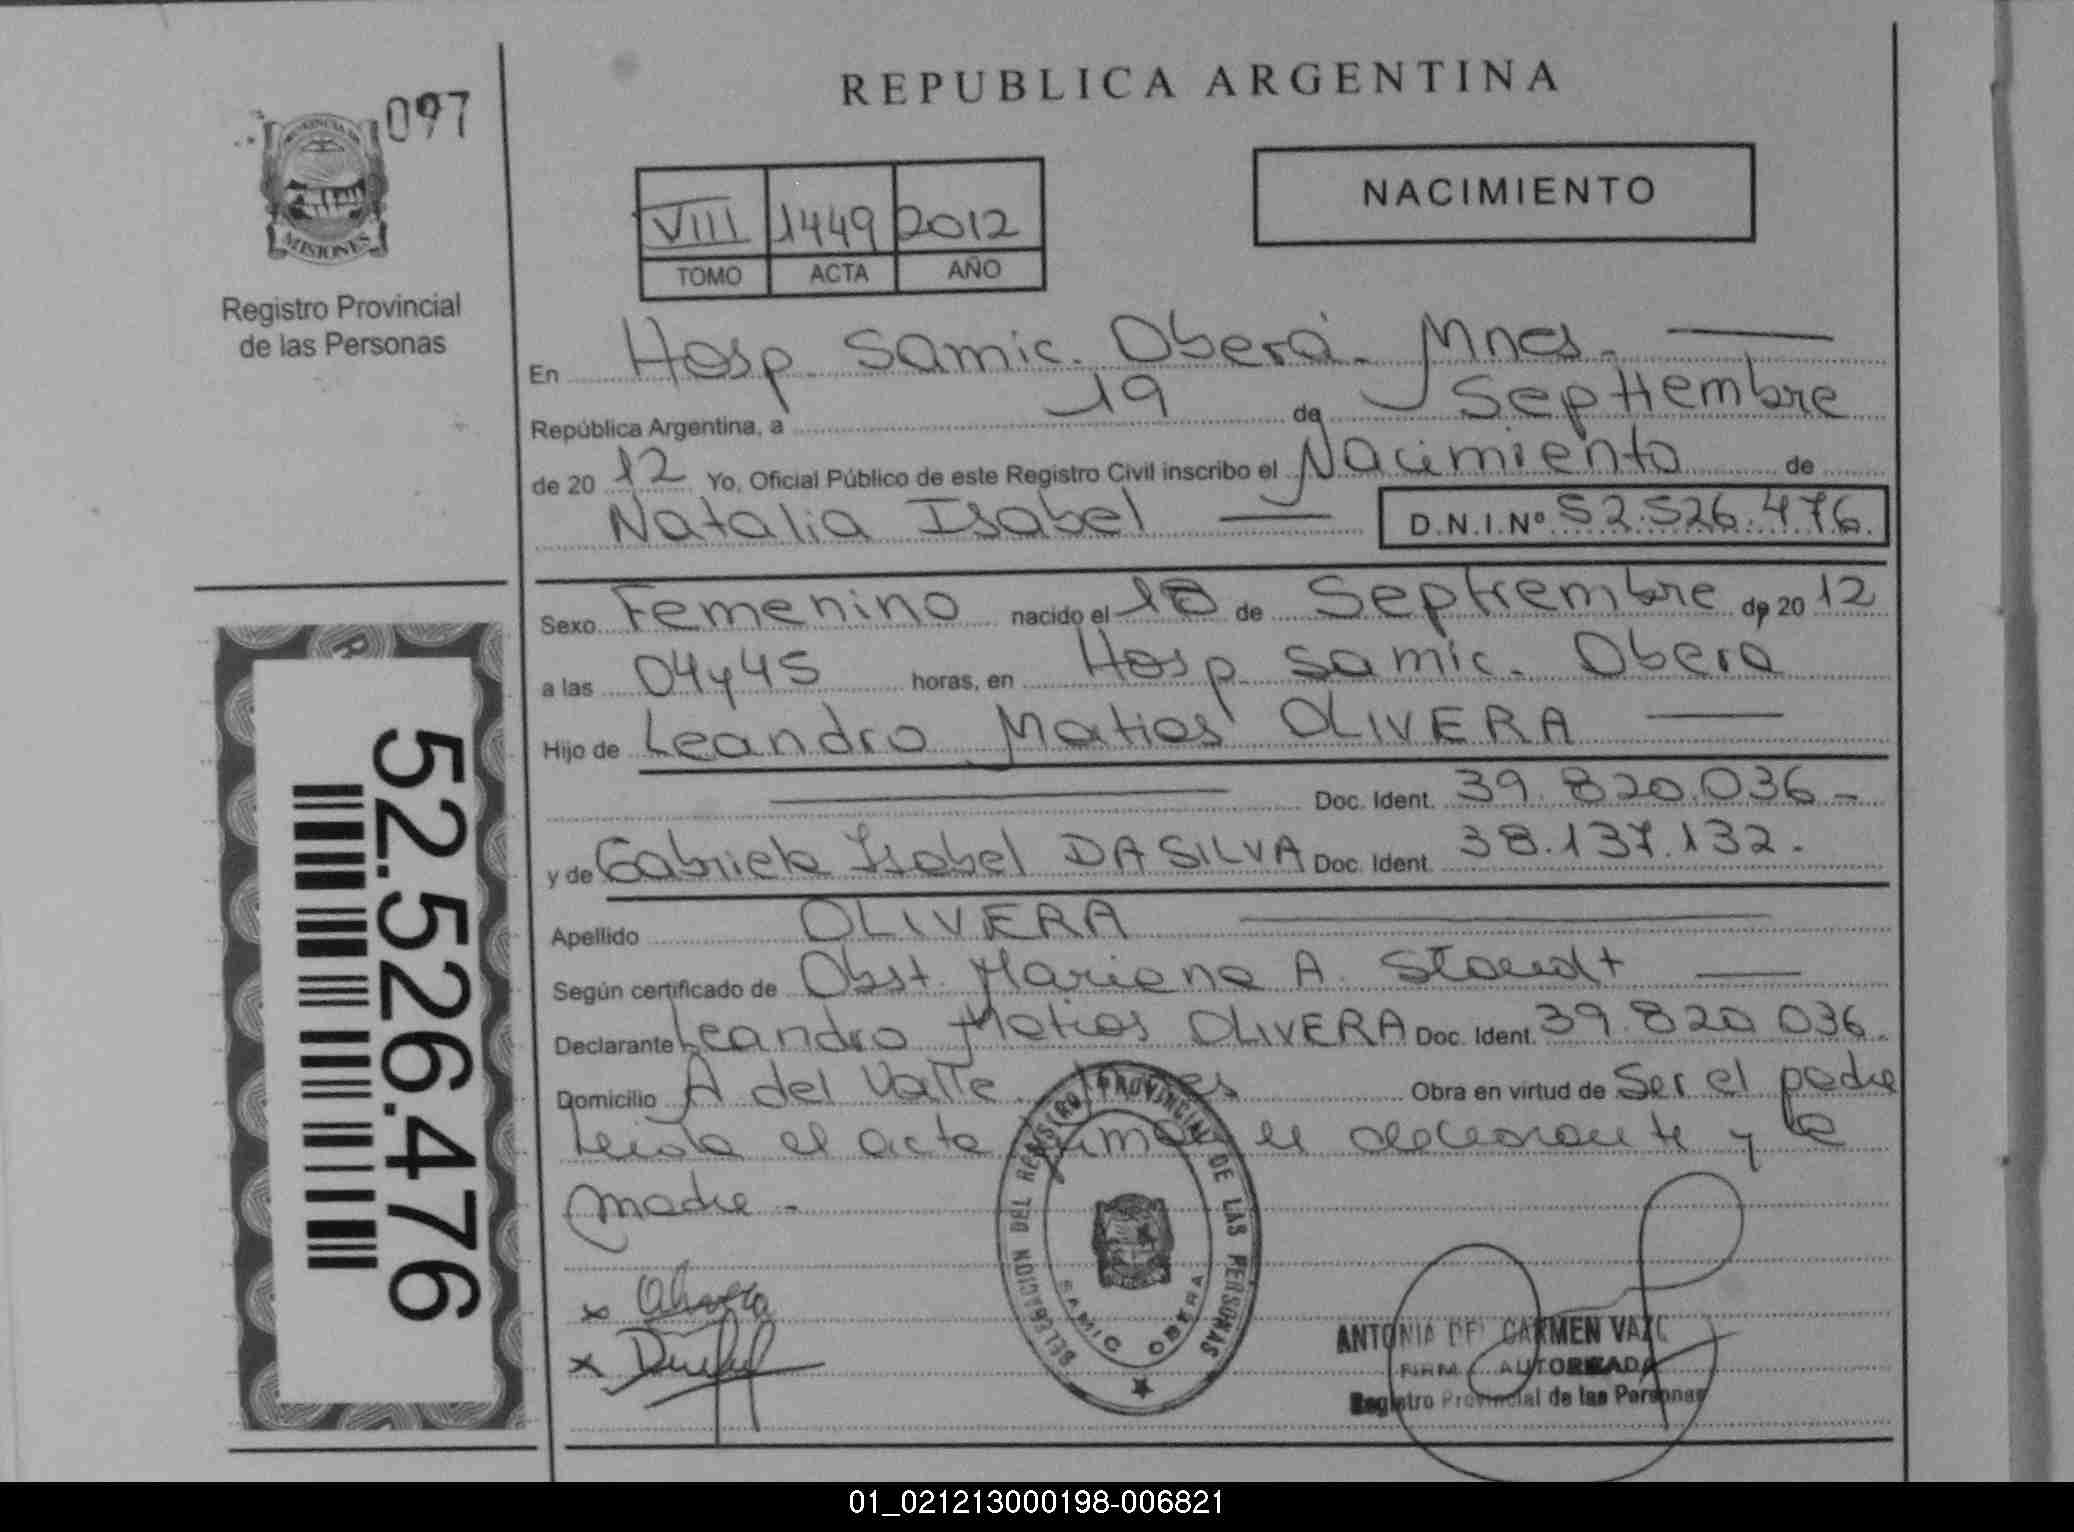 REPUBLICA ARGENTINA
097
PROVINCIA DE
MISIONES
Registro Provincial
de las Personas
NACIMIENTO
VIII 1449 2012
TOMO ACTA AÑO
En Hosp. Samic. Oberá. Mnes.
República Argentina, a 19 de Septiembre
de 20 12 Yo, Oficial Público de este Registro Civil inscribo el Nacimiento de
Natalia Isabel D.N.I.Nº 52.526.476.
Sexo Femenino nacido el 18 de Septiembre de 20 12
a las 04y45 horas, en Hosp. Samic. Oberá
Hijo de Leandro Matias OLIVERA
Doc. Ident. 39.820.036-
y de Gabriela Isabel DA SILVA Doc. Ident. 38.137.132.
Apellido OLIVERA
Según certificado de Obst. Mariana A. Staudt
Declarante Leandro Matias OLIVERA Doc. Ident. 39.820.036.
Domicilio A del Valle Mnes Obra en virtud de Ser el padre
Leida el acta firman el declarante y la
madre.-
x Olivera
x
DELEGACION DEL REGISTRO PROVINCIAL DE LAS PERSONAS
SAMIC OBERA
ANTONIA DEL CARMEN
FIRMA AUTORIZADA
Registro Provincial de las Personas
52.526.476
01_021213000198-006821